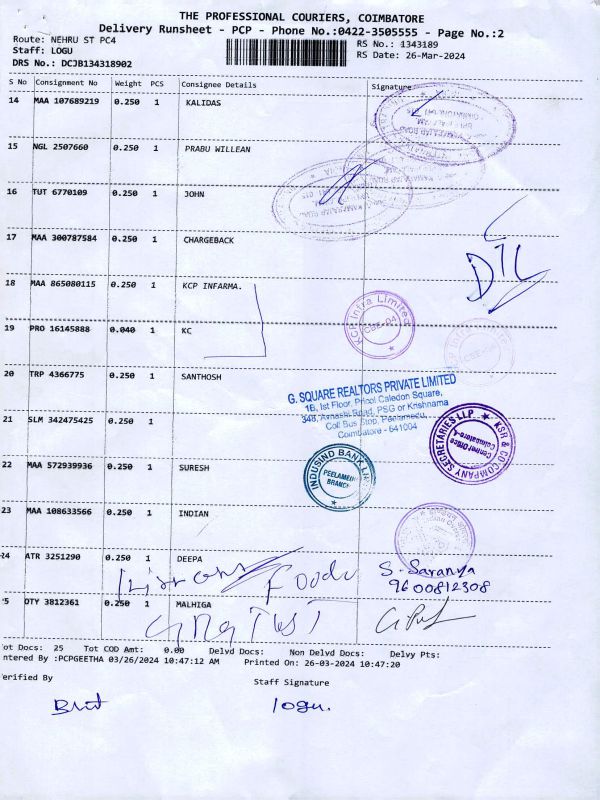 THE PROFESSIONAL COURIERS, COIMBATORE
Delivery Runsheet - PCP - Phone No.:0422-3505555 - Page No.:2
Route: NEHRU ST PC4 RS No.: 1343189
Staff: LOGU RS Date: 26-Mar-2024
DRS No.: DCJB134318902
S No Consignment No Weight PCS Consignee Details Signature
14 MAA 107689219 0.250 1 KALIDAS
15 NGL 2507660 0.250 1 PRABU WILLEAN
16 TUT 6770109 0.250 1 JOHN
17 MAA 300787584 0.250 1 CHARGEBACK
DTL
18 MAA 865080115 0.250 1 KCP INFARMA.
KCP Infra Limited
CBE-04
19 PRO 16145888 0.040 1 KC
20 TRP 4366775 0.250 1 SANTHOSH
G. SQUARE REALTORS PRIVATE LIMITED
1B, Ist Floor, Pricol Caledon Square,
346, Avnashi Road, PSG or Krishnama
Coll Bus Stop, Peelamedu,
Coimbatore - 641004
21 SLM 342475425 0.250 1
KSR & CO COMPANY SECRETARIES LLP
Coimbatore
22 MAA 572939936 0.250 1 SURESH
INDUSIND BANK LTD
PEELAMEDU
BRANCH
23 MAA 108633566 0.250 1 INDIAN
24 ATR 3251290 0.250 1 DEEPA
Foods
S. Saranya
9600812308
25 OTY 3812361 0.250 1 MALHIGA
ot Docs: 25 Tot COD Amt: 0.00 Delvd Docs: Non Delvd Docs: Delvy Pts:
ntered By :PCPGEETHA 03/26/2024 10:47:12 AM Printed On: 26-03-2024 10:47:20
erified By Staff Signature
logu.